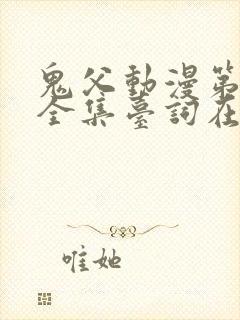 鬼父動漫第
全集臺詞在
唯她